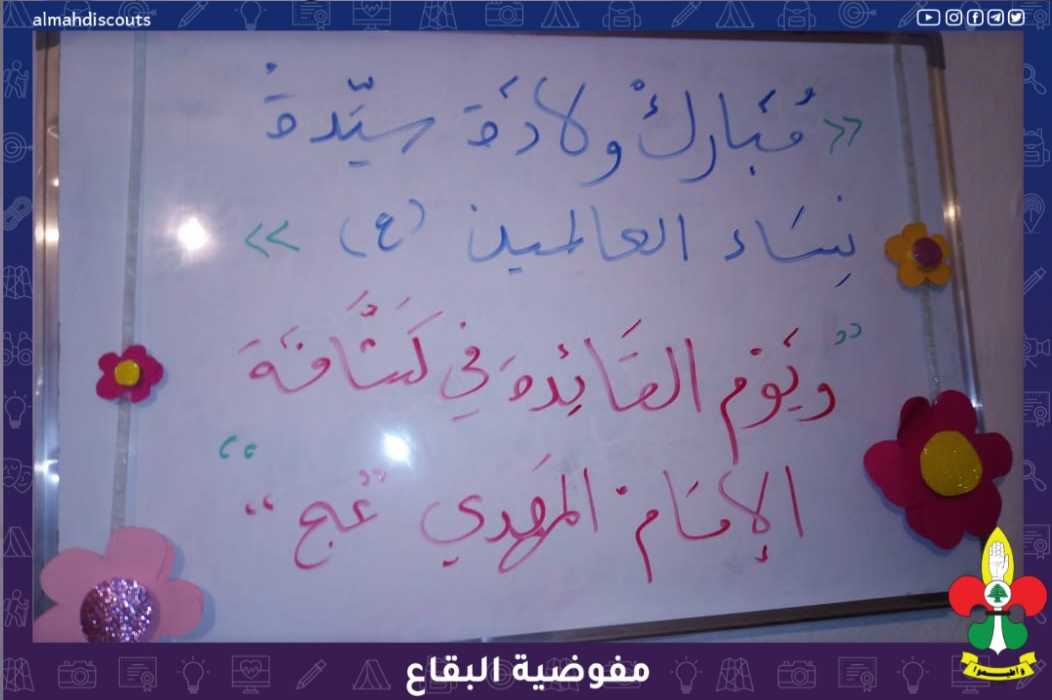 almahdiscouts
«مُبَاركْ ولادَة سيّدةُ
نِسَاء العالمين (ع)»
"ويَوْم القَائِدة في كَشَّافَة
الإمَام المَهدي "عج""
مفوضية البقاع